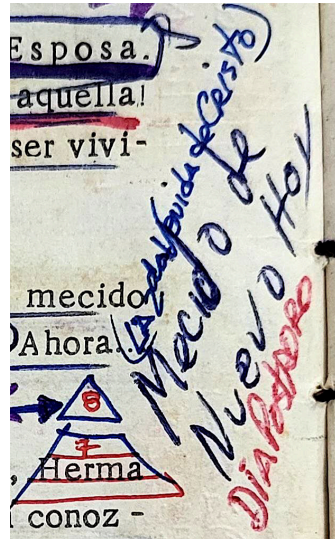 Esposa.
aquella!
ser vivi-
mecido
Ahora.
8
7
, Herma
conoz-
(La dal de Cristo)
Mecido de
Nuevo Hoy
Día Postrero